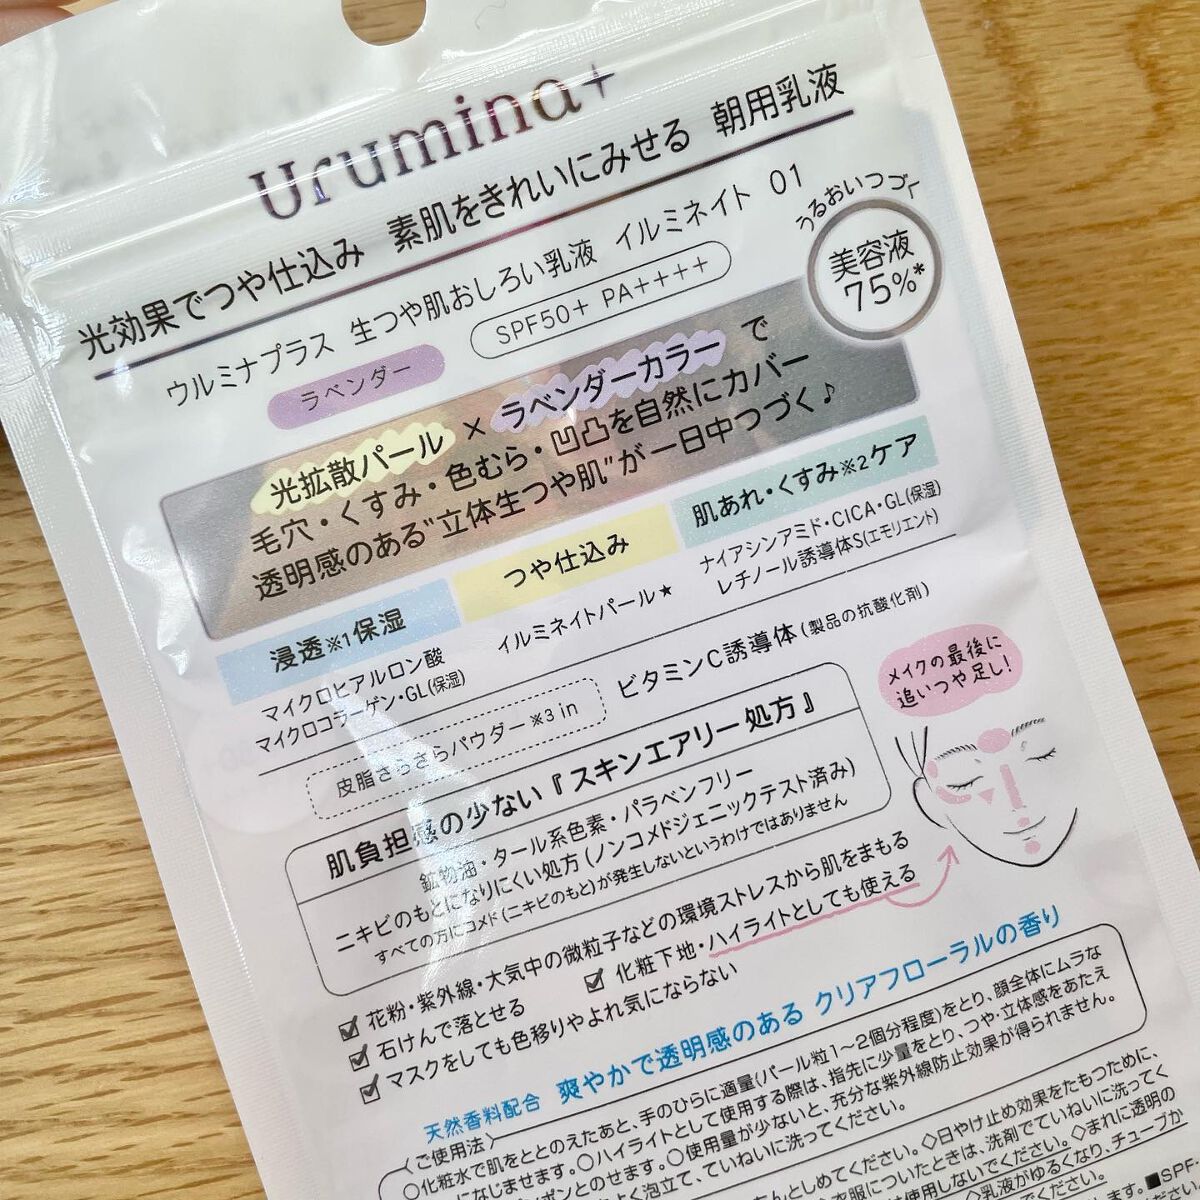 Urumina+
光効果でつや仕込み 素肌をきれいにみせる 朝用乳液
ウルミナプラス 生つや肌おしろい乳液 イルミネイト 01
ラベンダー
SPF50+ PA++++
うるおいつづく
美容液
75%*
光拡散パール × ラベンダーカラー で
毛穴・くすみ・色むら・凹凸を自然にカバー
透明感のある"立体生つや肌"が一日中つづく♪
浸透※1保湿
マイクロヒアルロン酸
マイクロコラーゲン・GL(保湿)
つや仕込み
イルミネイトパール★
肌あれ・くすみ※2ケア
ナイアシンアミド・CICA・GL(保湿)
レチノール誘導体S(エモリエント)
皮脂さらさらパウダー※3 in
ビタミンC誘導体(製品の抗酸化剤)
肌負担感の少ない『スキンエアリー処方』
鉱物油・タール系色素・パラベンフリー
ニキビのもとになりにくい処方(ノンコメドジェニックテスト済み)
すべての方にコメド(ニキビのもと)が発生しないというわけではありません
メイクの最後に
追いつや足し!
花粉・紫外線・大気中の微粒子などの環境ストレスから肌をまもる
石けんで落とせる
化粧下地・ハイライトとしても使える
マスクをしても色移りやよれ気にならない
天然香料配合 爽やかで透明感のある クリアフローラルの香り
〈ご使用法〉
○化粧水で肌をととのえたあと、手のひらに適量(パール粒1～2個分程度)をとり、顔全体にムラな
くなじませます。○ハイライトとして使用する際は、指先に少量をとり、つや・立体感をあたえ
ポンとのせます。○使用量が少ないと、充分な紫外線防止効果が得られません。
よく泡立て、ていねいに洗ってください。
んとしめてください。◇日やけ止め効果をたもつために、
衣服についたときは、洗剤でていねいに洗ってく
は使用しないでください。◇まれに透明の
◇乳液がゆるくなり、チューブか
ます。■SPF・